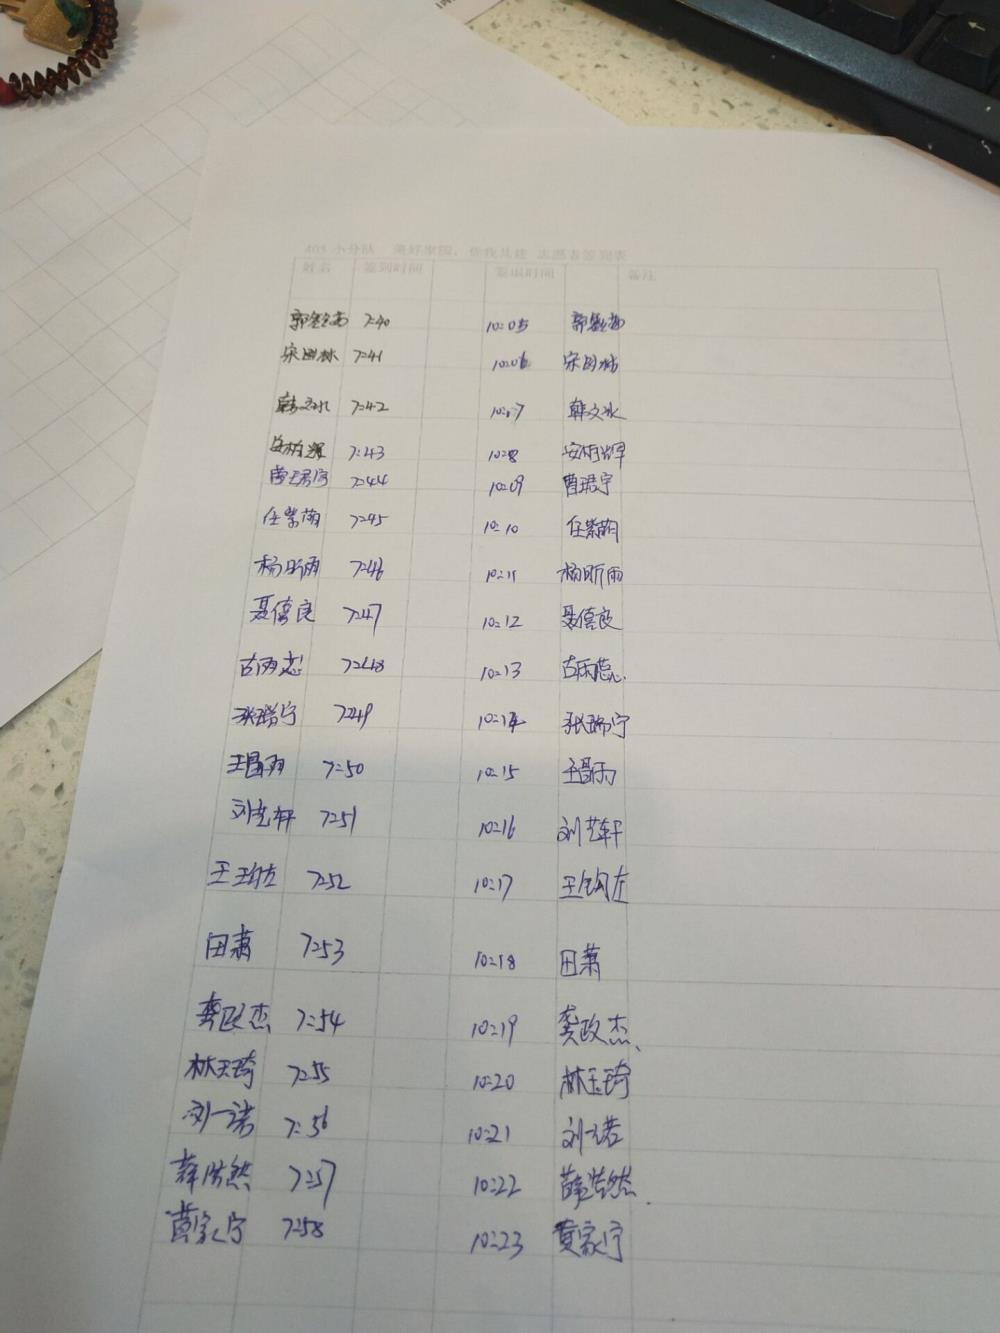 405 小分队 美好家园，你我共建 志愿者签到表
姓名 签到时间 签退时间 备注
7:40 10:05
宋国林 7:41 10:06 宋国林
韩文冰 7:42 10:07 韩文冰
7:43 10:8
曹珺宁 7:44 10:09 曹珺宁
任紫萌 7:45 10:10 任紫萌
杨昕雨 7:46 10:11 杨昕雨
聂僖良 7:47 10:12 聂僖良
古雨蕊 7:48 10:13 古雨蕊
张瑞宁 7:49 10:14 张瑞宁
7:50 10:15
刘艺轩 7:51 10:16 刘艺轩
7:52 10:17
田萧 7:53 10:18 田萧
龚政杰 7:54 10:19 龚政杰
林玉琦 7:55 10:20 林玉琦
刘一诺 7:56 10:21 刘一诺
薛浩然 7:57 10:22 薛浩然
黄家宁 7:58 10:23 黄家宁